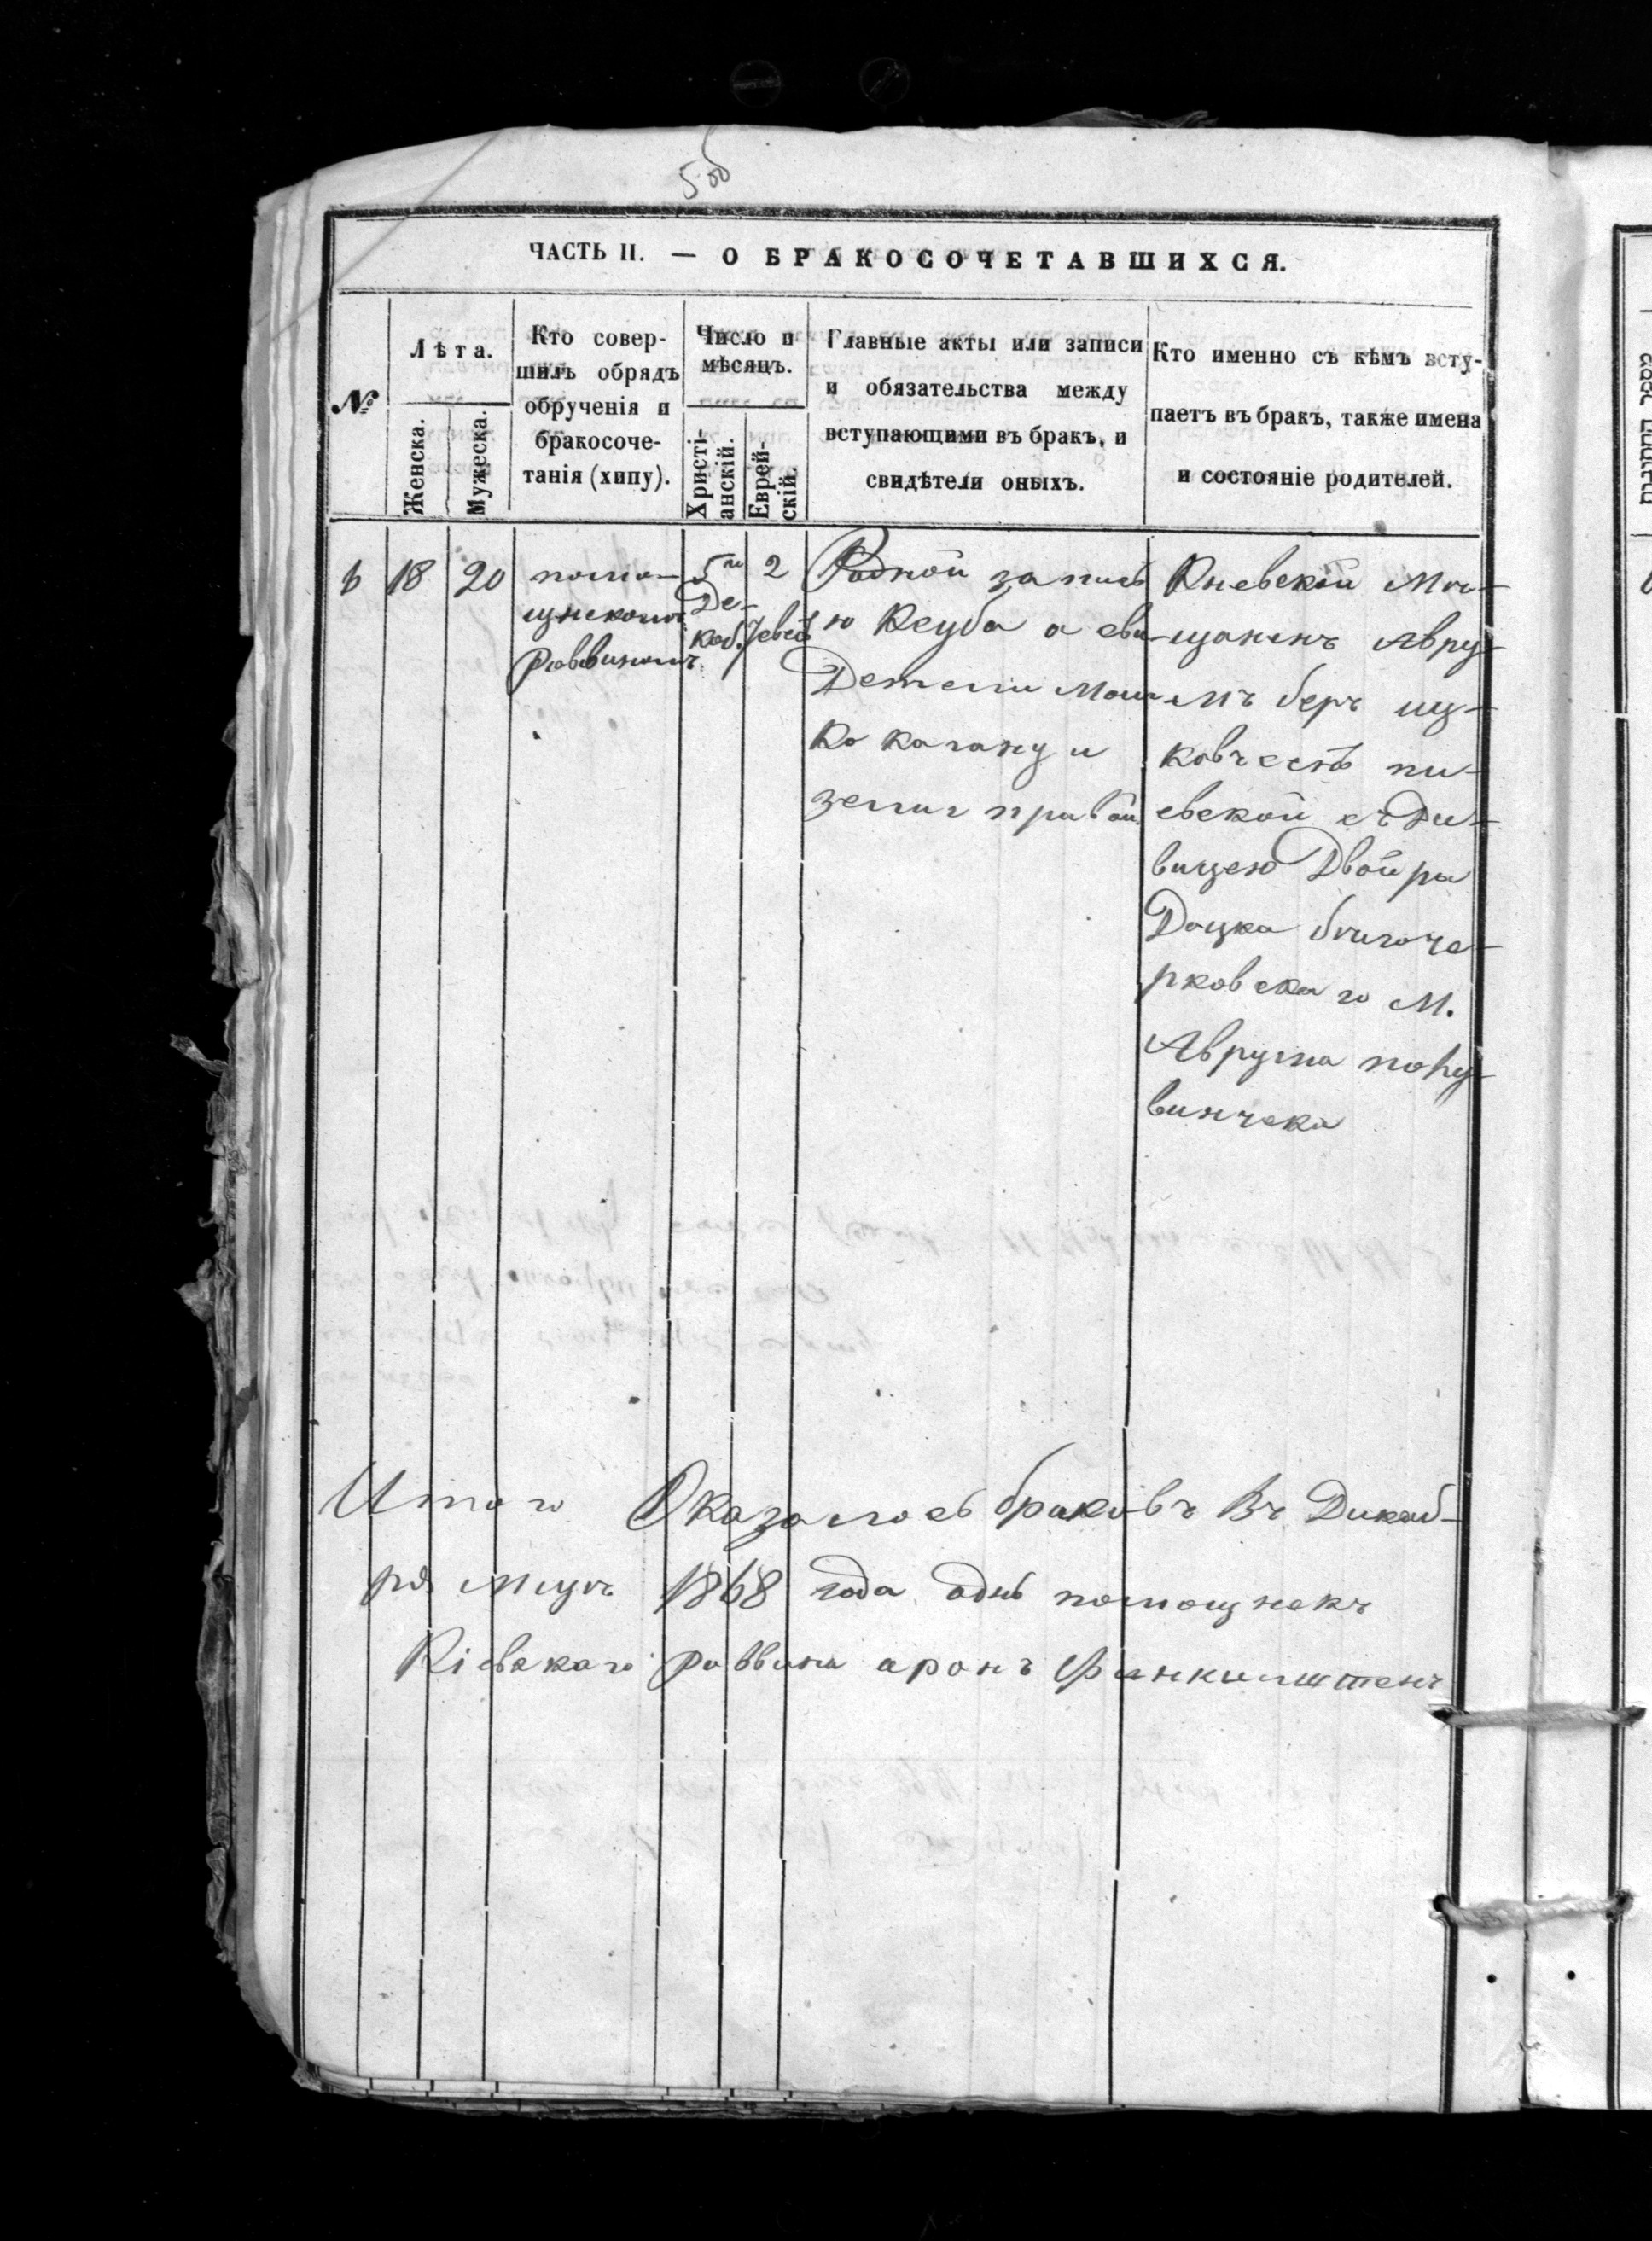 5об
ЧАСТЬ II. — О БРАКОСОЧЕТАВШИХСЯ.
№
Лѣта.
Женска.
Мужеска.
Кто совер-
шилъ обрядъ
обрученія и
бракосоче-
танія (хипу).
Число и
мѣсяцъ.
Христі-
анскій.
Еврей-
скій.
Главные акты или записи
и обязательства между
вступающими въ бракъ, и
свидѣтели оныхъ.
Кто именно съ кѣмъ всту-
паетъ въ бракъ, также имена
и состояніе родителей.
6
18
20
помо-
щникомъ
раввиномъ
5го
Де-
каб.
2
Тевеѣ
Родной запись
ю Кецба а сви-
Детели Мош
ко каганъ и
зелиг
Киевскій Мѣ-
щанинъ Авру-
мъ беръ
евской съ Ди-
вицею Двойра
Доцка билоче-
рковскаго М.
Аврума
Итого Оказалось браковъ Въ Дикаб-
ря мцѣ 1868 года однѣ помощнекъ
Кіевскаго раввина аронъ Финкилштенъ